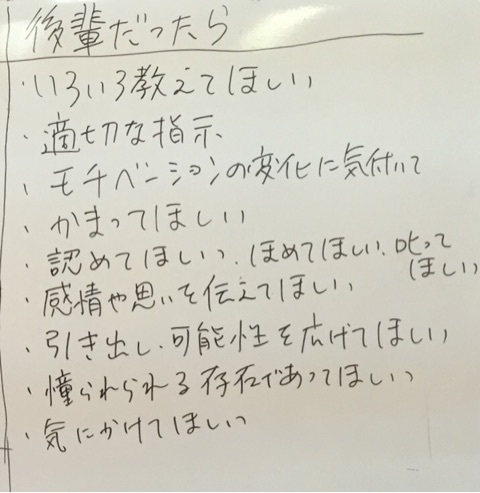 後輩だったら
・いろいろ教えてほしい
・適切な指示
・モチベーションの変化に気付いて
・かまってほしい
・認めてほしい、ほめてほしい、叱って
ほしい
・感情や思いを伝えてほしい
・引き出し、可能性を広げてほしい
・憧られられる存在であってほしい
・気にかけてほしい